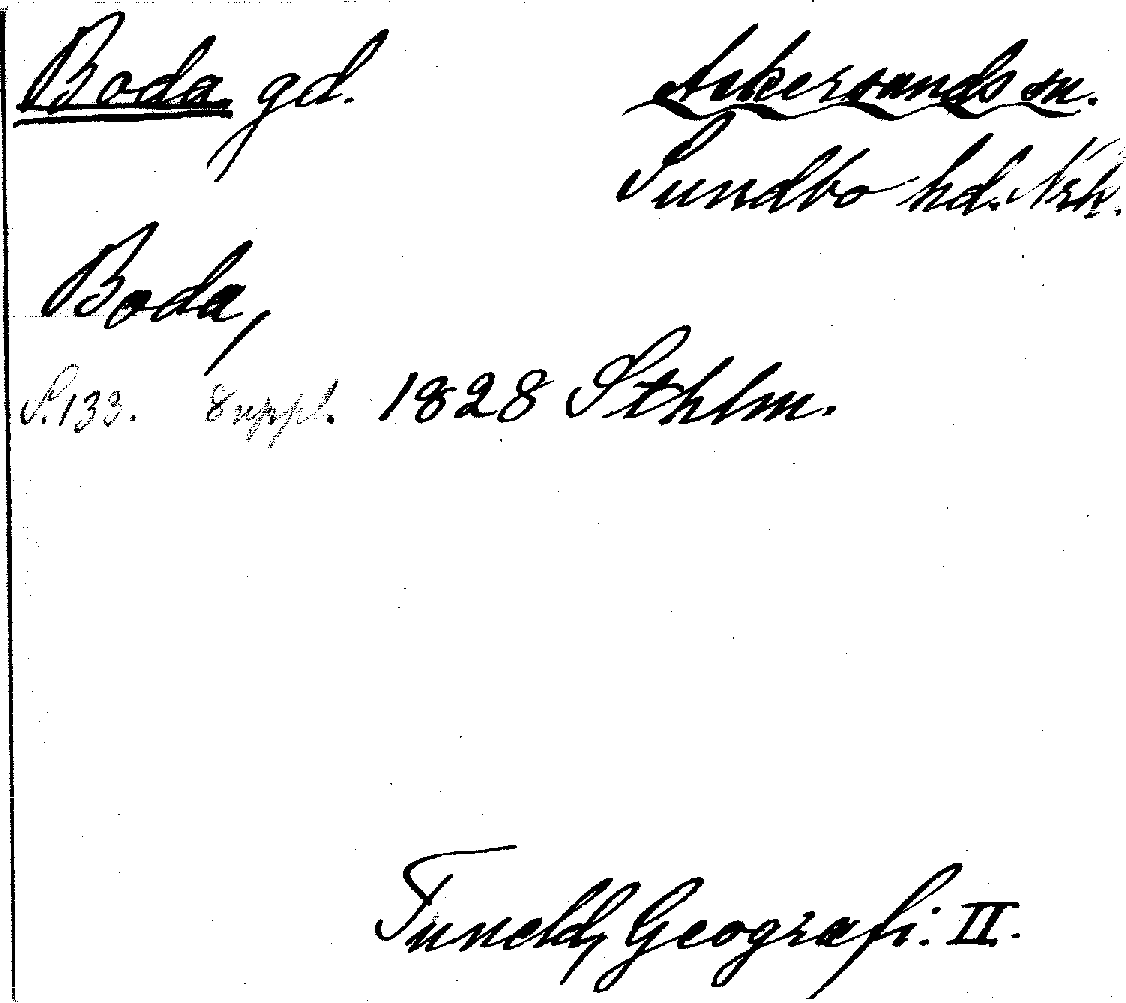 Boda gd.
Askersunds sn.
Sundbo hd. Nrk.
Boda,
S. 133. Suppl. 1828 Sthlm.
Tuneld, Geografi. II.